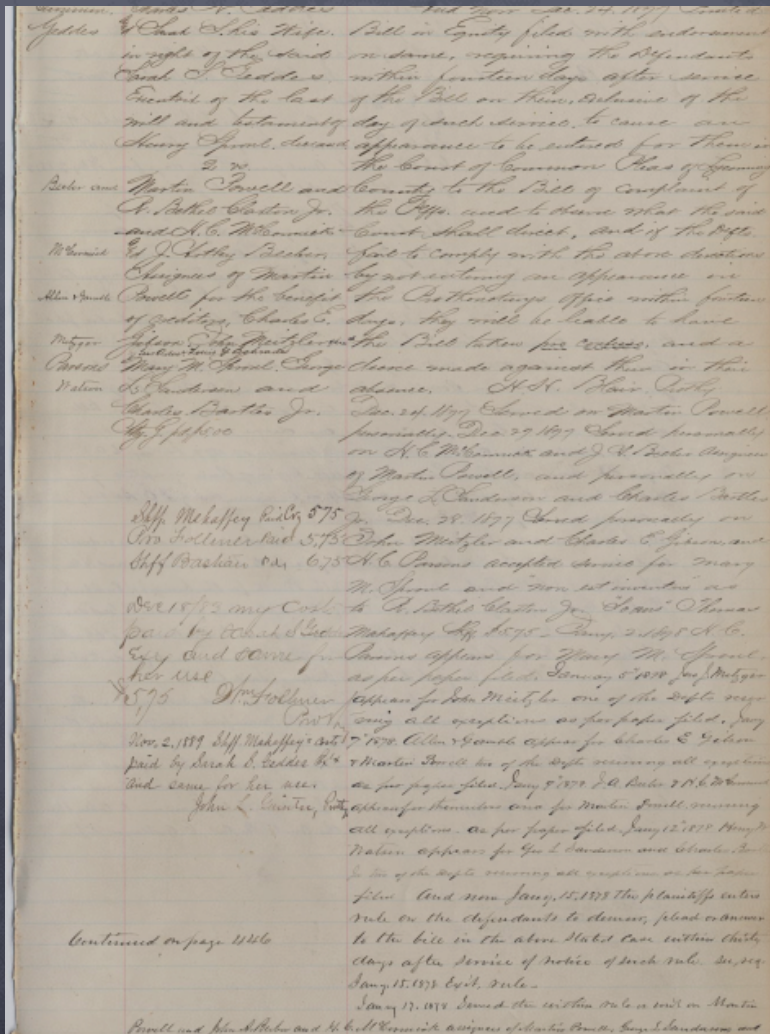 Geddes
& Sarah S. his Wife.
in right of the said
Sarah S. Geddes
Executrix of the last
will and testament of
Henry Sproul, deceased
2 vs.
Martin Powell and
R. Bethel Claxton Jr.
and H. C. McCormick
Assignees of Martin
Powell for the benefit
of creditors, Charles E.
Gibson, John Meitzler
Mary M. Sproul, George
L. Sanderson and
Charles Bartles Jr.
Beeber and
McCormick
Allen & Gamble
Metzger
Parsons
Watson
Shff. Mahaffey 575
Pro Follmer Paid 575
Shff Bashan Pd. 675
Dec 18/83 my costs
paid by Sarah S Geddes
Exx and same for
her use
575 Wm Follmer
Nov. 2, 1889, Shff. Mahaffey's costs
paid by Sarah S. Geddes
and same for her use.
John L. Guinter, Prothy
Continued on page 446
And now Dec. 24. 1877
Bill in Equity filed with endorsement
on same, requiring the Defendants
within fourteen days after service
of the Bill on them, exclusive of the
day of such service, to cause an
appearance to be entered for them in
the Court of Common Pleas of Lycoming
County to the Bill of complaint of
the Plffs. and to observe what the said
Court shall direct, and if the Defts
fail to comply with the above directions
by not entering an appearance in
the Prothonotarys office within fourteen
days, they will be liable to have
the Bill taken pro confesso, and a
decree made against them in their
absence. H. H. Blair, Prothy
Dec. 24, 1877 Served on Martin Powell
personally, Dec. 29, 1877 Served personally
on H. C. McCormick and J. A. Beeber assignees
of Martin Powell, and personally on
George L. Sanderson and Charles Bartles
Jr. Dec. 28. 1877 Served personally on
John Meitzler and Charles E. Gibson, and
H. C. Parsons accepted service for Mary
M. Sproul and "non est inventus" as
to R. Bethel Claxton Jr. Thomas
Mahaffey Shff $5.75 Jany. 2. 1878 H. C.
Parsons appears for Mary M. Sproul
as per paper filed. January 5" 1878 Jas J. Metzger
appears for John Meitzler one of the Defts
all exceptions as per paper filed. Jany
7" 1878. Allen & Gamble appear for Charles E Gibson
& Martin Powell two of the Defts all exceptions
as per paper filed. Jany 9" 1878 J. A. Beeber & H. C. McCormick
appear for themselves and for Martin Powell,
all exceptions as per paper filed. Jany 12" 1878 Henry W
Watson appears for Geo L Sanderson and Charles
Jr two of the Defts all exceptions as per paper
filed And now Jany. 15. 1878 the plaintiffs enters
rule on the defendants to demur, plead or answer
to the bill in the above stated case within thirty
days after service of notice of such rule.
Jany. 15. 1878 Exit. rule
Jany 17. 1878 Served the within rule on Martin
Powell and John A. Beeber and H. C. McCormick assignees of Martin Powell, George L. Sanderson and